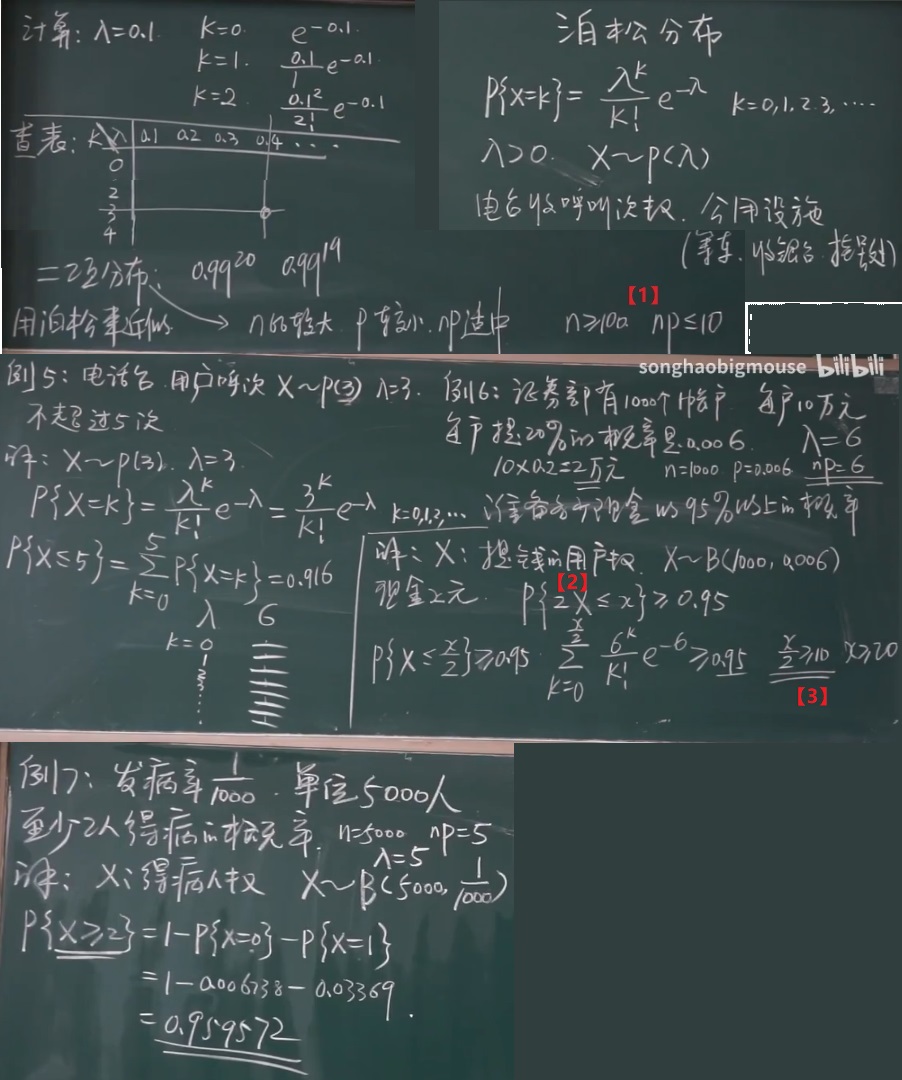 计算: λ=0.1. K=0. e^{-0.1}.
K=1. \frac{0.1}{1}e^{-0.1}.
K=2 \frac{0.1^2}{2!}e^{-0.1}
查表: K λ 0.1 0.2 0.3 0.4 ....
0
2
3
4
泊松分布
P{X=K}= \frac{λ^K}{K!}e^{-λ} K=0,1,2.3,....
λ>0. X~P(λ)
电台收呼叫次数. 公用设施
(等车. 收银台. 挂号处)
=二项分布: 0.99^{20} 0.99^{19}
【1】
用泊松来近似 → n比较大. p较小. np适中 n≥100. np≤10
songhaobigmouse bilibili
例5: 电话台. 用户呼次 X~P(3) λ=3.
不超过5次
解: X~P(3). λ=3.
P{X=K}= \frac{λ^K}{K!}e^{-λ}= \frac{3^K}{K!}e^{-λ} K=0,1,2,...
P{X≤5}= \sum_{K=0}^{5}P{X=K}=0.916
λ 6
K=0
1
2
3
例6: 证券部有1000个帐户 每户10万元
每户提20%的概率是0.006. λ=6
10×0.2=2万元 n=1000 p=0.006 np=6
准备多少现金 以95%以上的概率
解: X: 提钱的用户数. X~B(1000, 0.006)
【2】
现金x元. P{2X≤x}≥0.95
P{X≤\frac{x}{2}}≥0.95 \sum_{K=0}^{\frac{x}{2}} \frac{6^K}{K!}e^{-6}≥0.95 \frac{x}{2}≥10 x≥20
【3】
例7: 发病率\frac{1}{1000}. 单位5000人
至少2人得病的概率. n=5000 np=5
λ=5
解: X: 得病人数 X~B(5000, \frac{1}{1000})
P{X≥2}=1-P{X=0}-P{X=1}
=1-0.006738-0.03369
=0.959572.